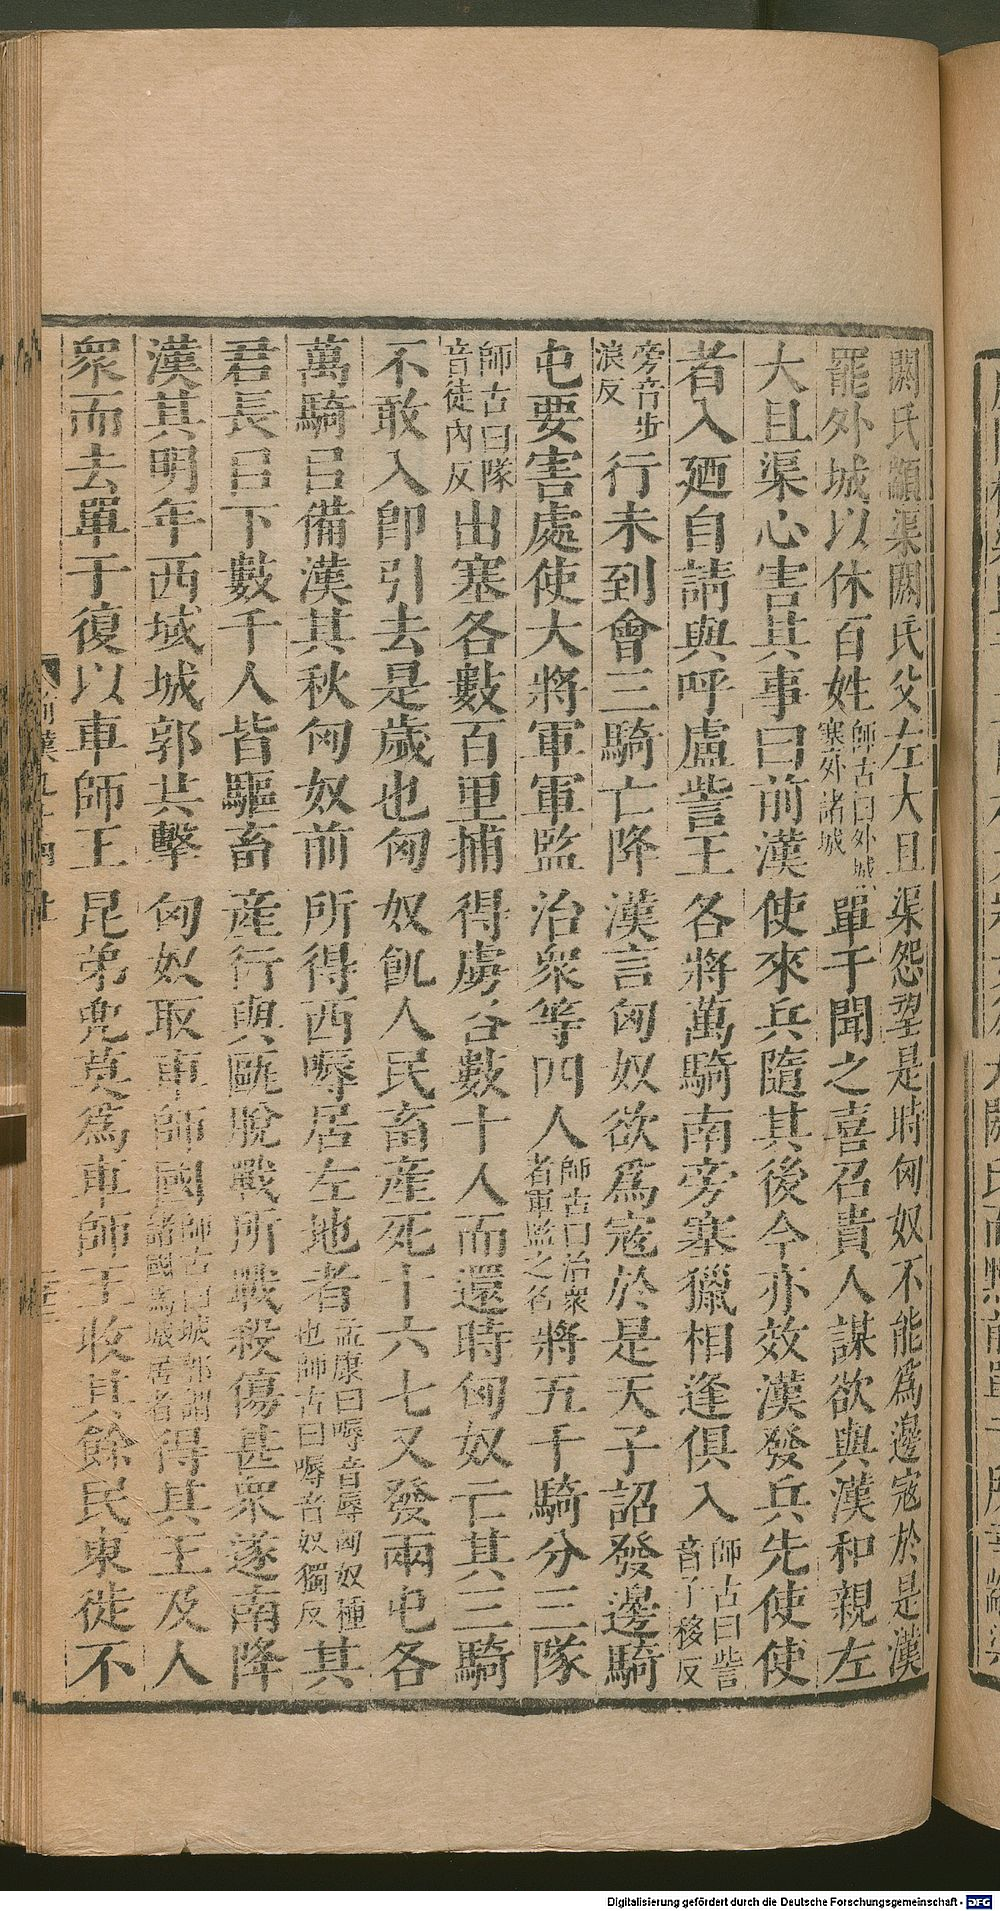 閼氏顓渠閼氏父左大且渠怨望是時匈奴不能爲邊寇於是漢
罷外城以休百姓師古曰外城塞外諸城單于聞之喜召貴人謀欲與漢和親左
大且渠心害其事曰前漢使來兵隨其後今亦效漢發兵先使使
者入廼自請與呼盧訾王各將萬騎南旁塞獵相逢俱入師古曰訾音子移反
旁音步浪反行未到會三騎亡降漢言匈奴欲爲寇於是天子詔發邊騎
屯要害處使大將軍軍監治衆等四人師古曰治衆者軍監之名將五千騎分三隊
師古曰隊音徒內反出塞各數百里捕得虜各數十人而還時匈奴亡其三騎
不敢入卽引去是歲也匈奴飢人民畜産死十六七又發兩屯各
萬騎㠯備漢其秋匈奴前所得西嗕居左地者孟康曰嗕音辱匈奴種也師古曰嗕音奴獨反其
君長㠯下數千人皆驅畜産行與甌脫戰所戰殺傷甚衆遂南降
漢其明年西域城郭共擊匈奴取車師國師古曰城郭謂諸國爲城居者得其王及人
衆而去單于復以車師王昆弟兜莫爲車師王收其餘民東徙不
前漢九十四上
Digitalisierung gefördert durch die Deutsche Forschungsgemeinschaft - DFG